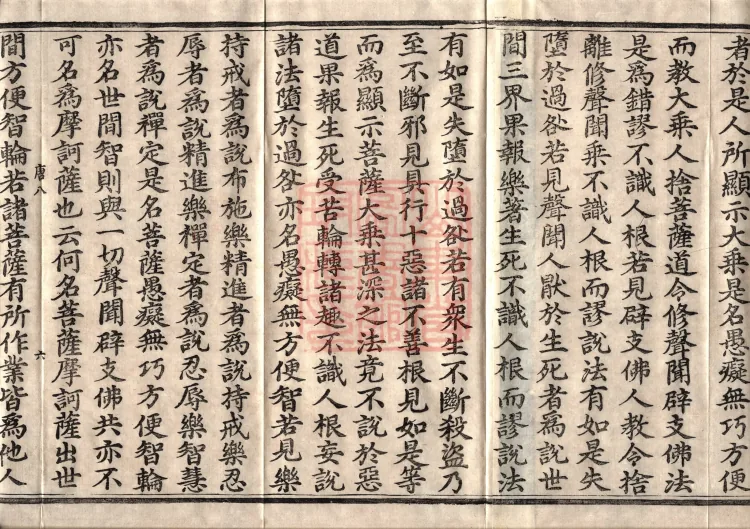 者於是人所顯示大乘是名愚癡無巧方便
而教大乘人捨菩薩道令修聲聞辟支佛法
是爲錯謬不識人根若見辟支佛人教令捨
離修聲聞乘不識人根而謬說法有如是失
墮於過咎若見聲聞人猒於生死者爲說世
間三界果報樂著生死不識人根而謬說法
有如是失墮於過咎若有衆生不斷殺盜乃
至不斷邪見具行十惡諸不善根見如是等
而爲顯示菩薩大乘甚深之法竟不說於惡
道果報生死受苦輪轉諸趣不識人根妄說
諸法墮於過咎亦名愚癡無方便智若見樂
持戒者爲說布施樂精進者爲說持戒樂忍
辱者爲說精進樂禪定者爲說忍辱樂智慧
者爲說禪定是名菩薩愚癡無巧方便智輪
亦名世間智則與一切聲聞辟支佛共亦不
可名爲摩訶薩也云何名菩薩摩訶薩出世
唐八 六
間方便智輪若諸菩薩有所作業皆爲他人